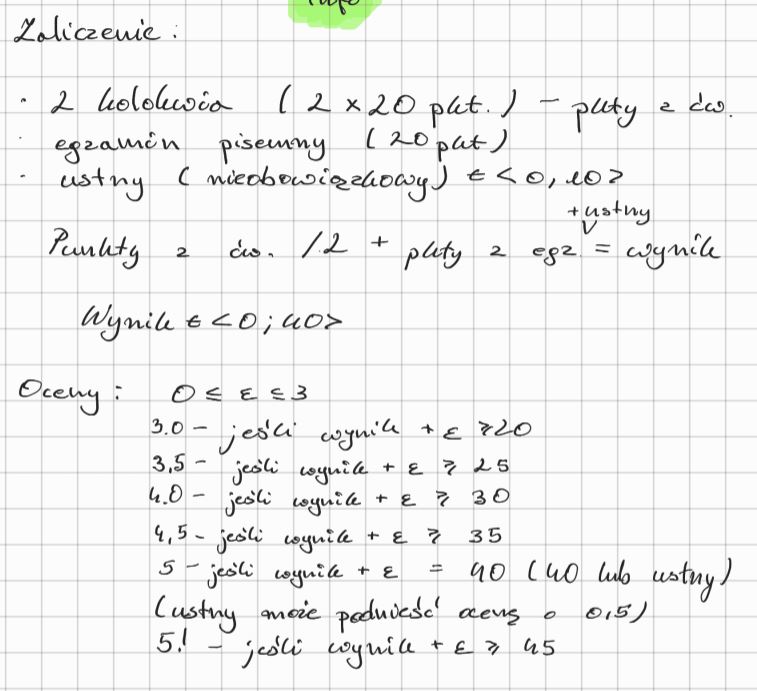 info
Zaliczenie:
· 2 kolokwia (2 x 20 pkt.) – pkty z ćw.
· egzamin pisemny (20 pkt)
· ustny (nieobowiązkowy) ∈ <0,10>
+ustny
Punkty z ćw. /2 + pkty z egz. = wynik
Wynik ∈ <0; 40>
Oceny: 0 ≤ ε ≤ 3
3.0 – jeśli wynik + ε ≥ 20
3,5 – jeśli wynik + ε ≥ 25
4.0 – jeśli wynik + ε ≥ 30
4,5 – jeśli wynik + ε ≥ 35
5 – jeśli wynik + ε = 40 (40 lub ustny)
(ustny może podnieść ocenę o 0,5)
5! – jeśli wynik + ε ≥ 45